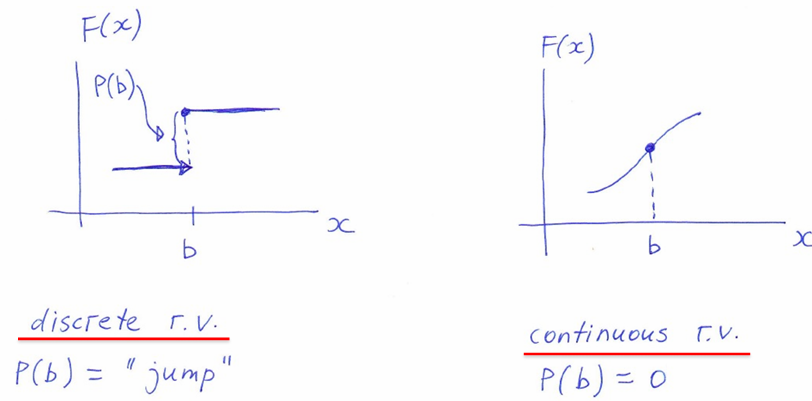 F(x)
P(b)
b
x
discrete r.v.
P(b) = "jump"
F(x)
b
x
continuous r.v.
P(b) = 0